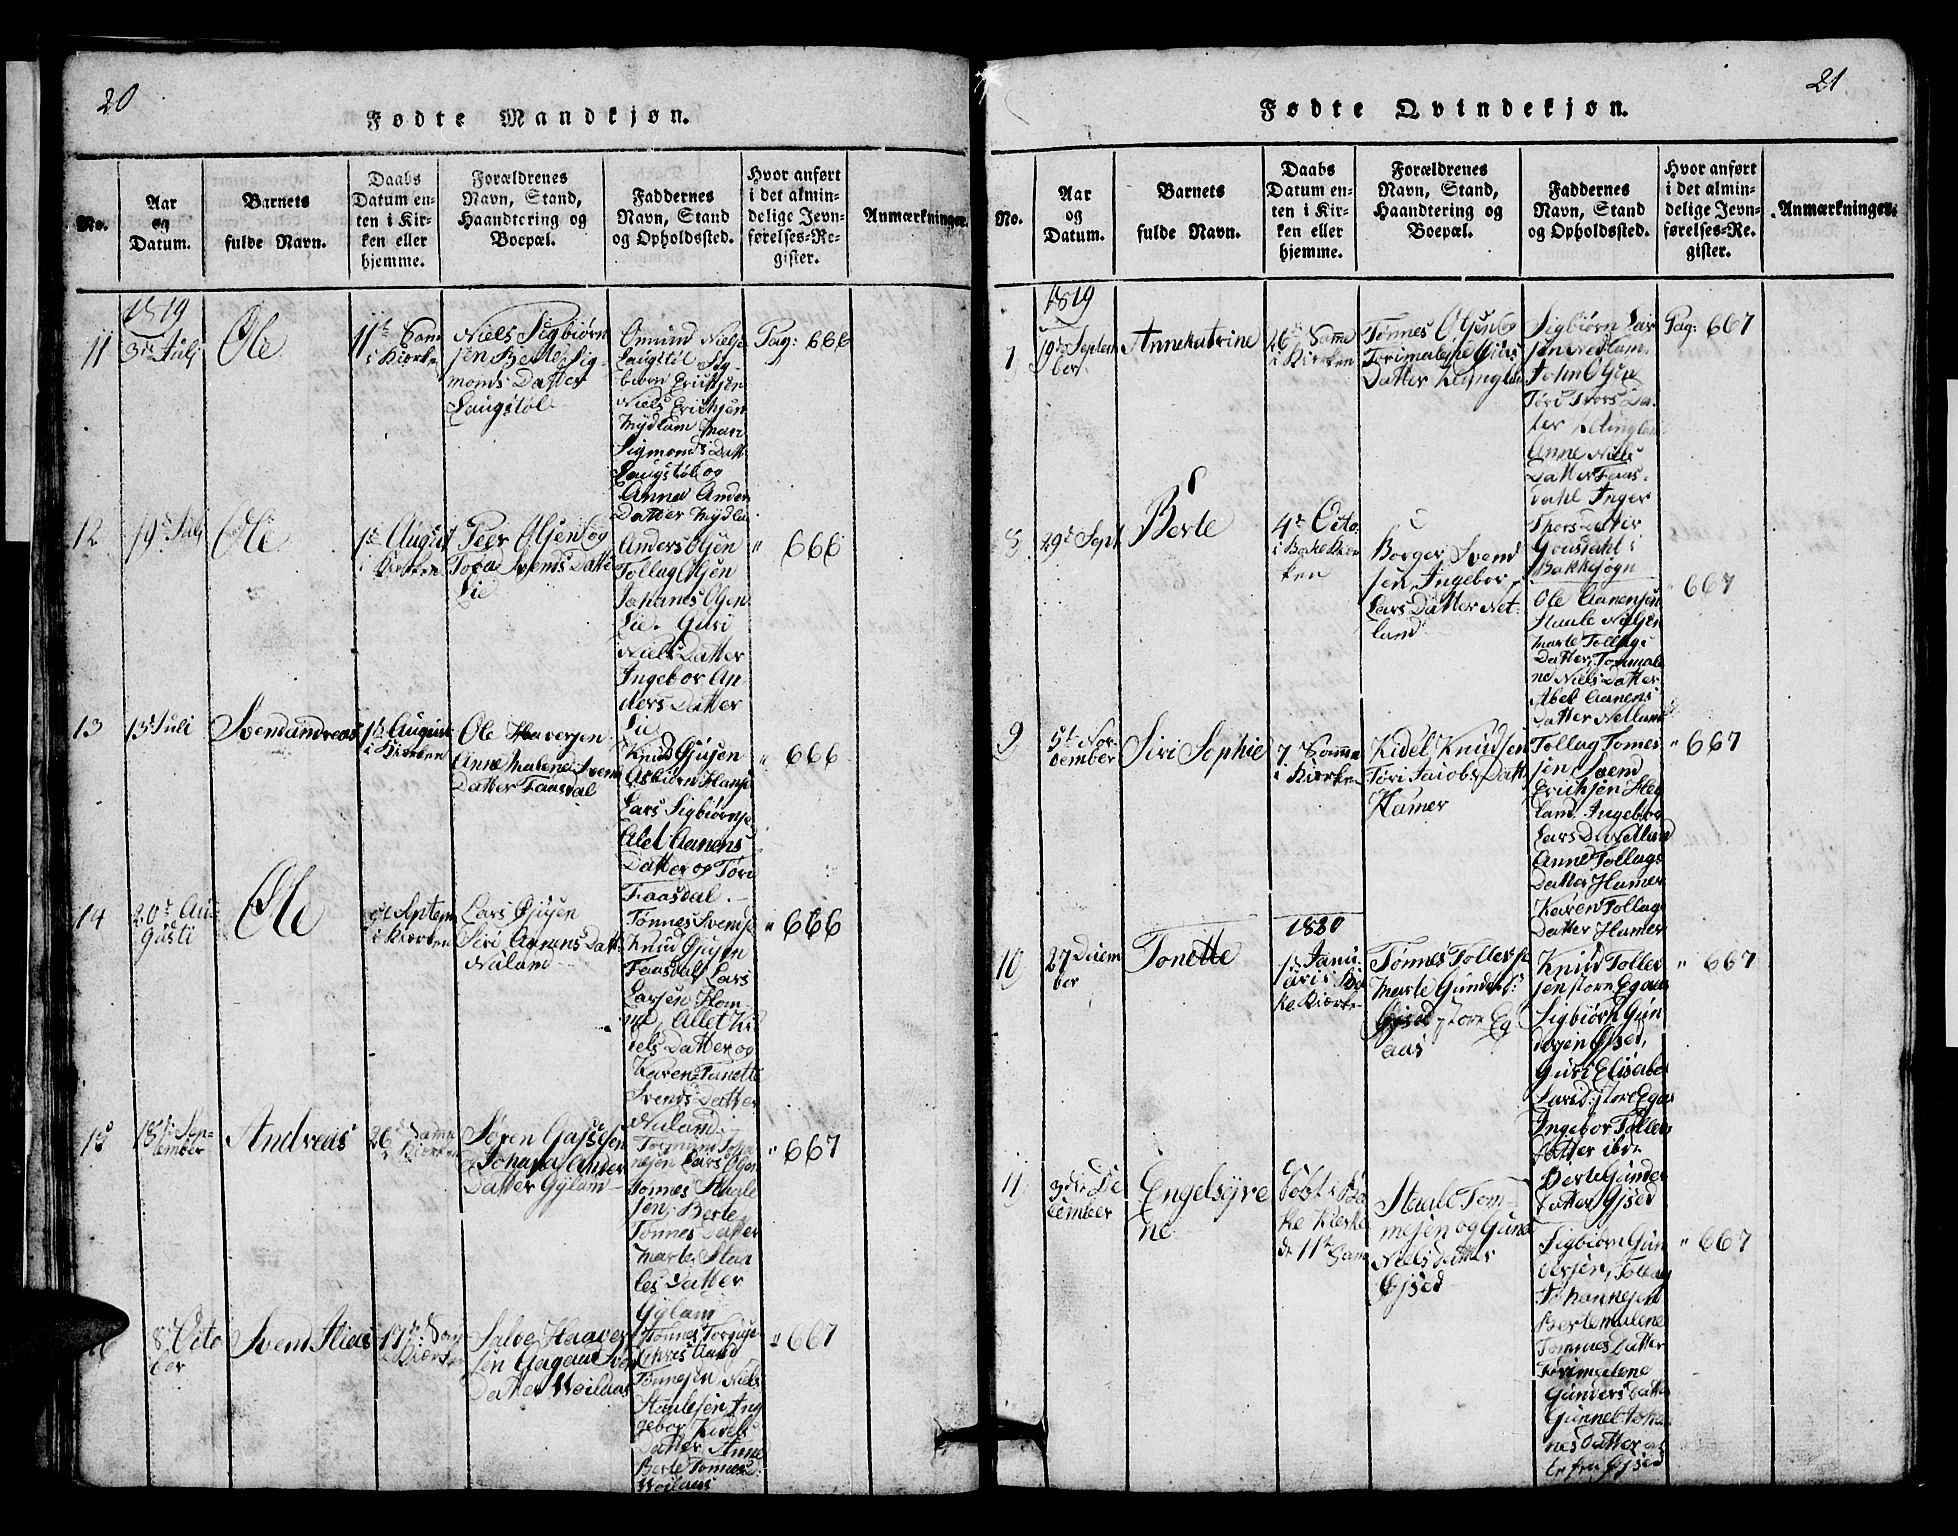 20
Fødte Mandkjøn.
No.
Aar
og
Datum.
Barnets
fulde Navn.
Daabs
Datum en-
ten i Kir-
ken eller
hjemme.
Forældrenes
Navn, Stand,
Haandtering og
Boepæl.
Faddernes
Navn, Stand
og Opholdssted.
Hvor anført
i det almin-
delige Jevn-
førelses-Re-
gister.
Anmærkninger.
1819
11
3de Juli
Ole
11te Sam
i Kierken
Niels Sigbiørn
sen Berte Sig
monds Datter
Laugstøl
Omund Niels
Laugstøl Sig
biørn Erichsen
Niels Erichsen
Mydlam Mari
Sigmonds Datt
Laugstøl og
Anna Anders
Datter Mydla
Pag: 666
12
19de Juli
Ole
1te August
i Kierken
Peer Olsen og
Tora Svends Datter
Lie
Anders Olsen
Tollag Olsen
Johanes Olsen
Lie. Guri
Niels Datter
Ingebor An
ders Datter
Lie
" 666
13
13de Juli
Svend andreas
1te August
i Kierken
Ole Haaversen
Anne Malene Svens
Datter Faasdal
Knud Gjusen
Asbiørn Hans
Lars Sigbiørns
Alet Aanens
Datter og Tøri
Faasdal.
" 666
14
20de Au
gusti
Ole
Septem
i Kierken
Lars Gjusen
Siri Aanens Datt
Naland
Tønnes Svens
Knud Gjusen
Faasdal Lars
Larsen Hom-
me, Allet Ki
iels Datter og
Karen Tanette
Svends Datter
Naland.
" 666
15
15de Sep-
tember
Andreas
26de Samme
i Kierken
Søren
Johana Ander
Datter Gyland
Tønnes Staale
sen, Berte
Tønnes Datter
Marte Staa
les Datter
Gyland
" 667
8de Octo
ber
Svend Elias
17de Sam
i Kierken
Salve Haaver
sen Aagaut Sven
Datter
Tønnes Torgus
Christiand
Tønnesen Niels
Staalesen Ing
gebor Kiels
Datter Anne
Berte Tønnes D:
" 667
21
Fødte Qvindekjøn.
No.
Aar
og
Datum.
Barnets
fulde Navn.
Daabs
Datum en-
ten i Kir-
ken eller
hjemme.
Forældrenes
Navn, Stand,
Haandtering og
Boepæl.
Faddernes
Navn, Stand
og Opholdssted.
Hvor anført
i det almin-
delige Jevn-
førelses-Re-
gister.
Anmærkninger.
1819
7
19de Septem
ber
Annekatrine
26de Samme
i Kierken
Tønnes Olsen og
Torimalene Guns
Datter
Sigbiørn Lar
sen Nedlam
John Olsen
Tøri Tors Da
ter
Anne Niels
Datter Faas-
dahl Inger
Thors Datter
Gousdahl i
Bakkesogn
Pag: 667
8
29de Sept
Berte
4de Octo
i Bakke Kier
ken
Borger Svend
sen, Ingebor
Lars Datter Net
land
Ole Aanensen
Staale Nielsen
Marte Tollags
Datter, Tommale
ne Niels Datter
Abel Aanens
Datter Netland
" 667
9
5te No-
vember
Siri Sophie
7de Samme
i Kierken
Kidel Knudsen
Tøri Jacobs Datt
Hamer
Tollag Tomes
sen, Svend
Erichsen Het
land Ingebor
Lars D: Netland
Anne Tollags
Datter Hamer
Karen Tollags
Datter Hamer
" 667
1820
10
27 Decem
ber
Tonette
1te Janu
arii i Ba
ke Kierke
Tønnes Tollefs
Marte Gunders D:
store Eg
aas
Knud Tollef
sen store Egaas
Sigbiørn Gun
dersen Gjsed,
Guri Elisabet
Lars D: store Egaas
Ingebor Tollefs
Datter ibd.
Berte Gunder
Datter Gjsed
" 667
11
3de De
cember
Engelsyre
ne
Døbt i Ba
ke Kierke
d. 11te Sam
Staale Tøn-
nesen og Guna
Niels Datter
Gjsed
Sigbiørn Gun
dersen, Tollag
Johannesen
Bertemalene
Tønnes Datter
Torimalene
Gunders Datter
Gunnel Joha
nes Datter al
le fra Gjsed
" 667